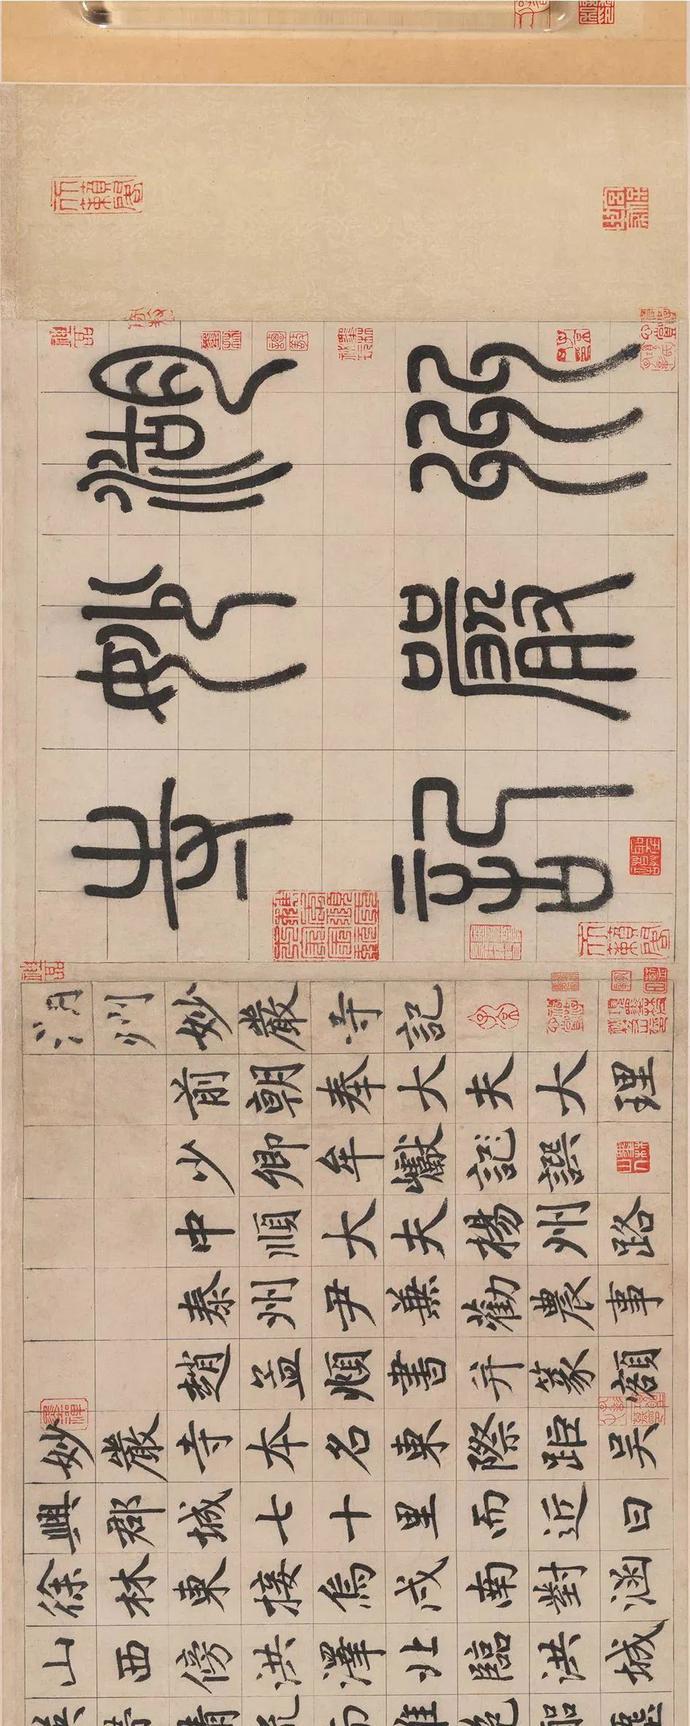 湖州
妙嚴
寺記
湖州妙嚴寺記
前朝奉大夫大理
少卿牟巘記譔
中順大夫楊州路
泰州尹兼勸農事
趙孟頫書并篆額
妙嚴寺本名東際距吳
興郡城七十里而近曰
徐林東接烏戍南對涵
山西傍洪澤北臨洪城